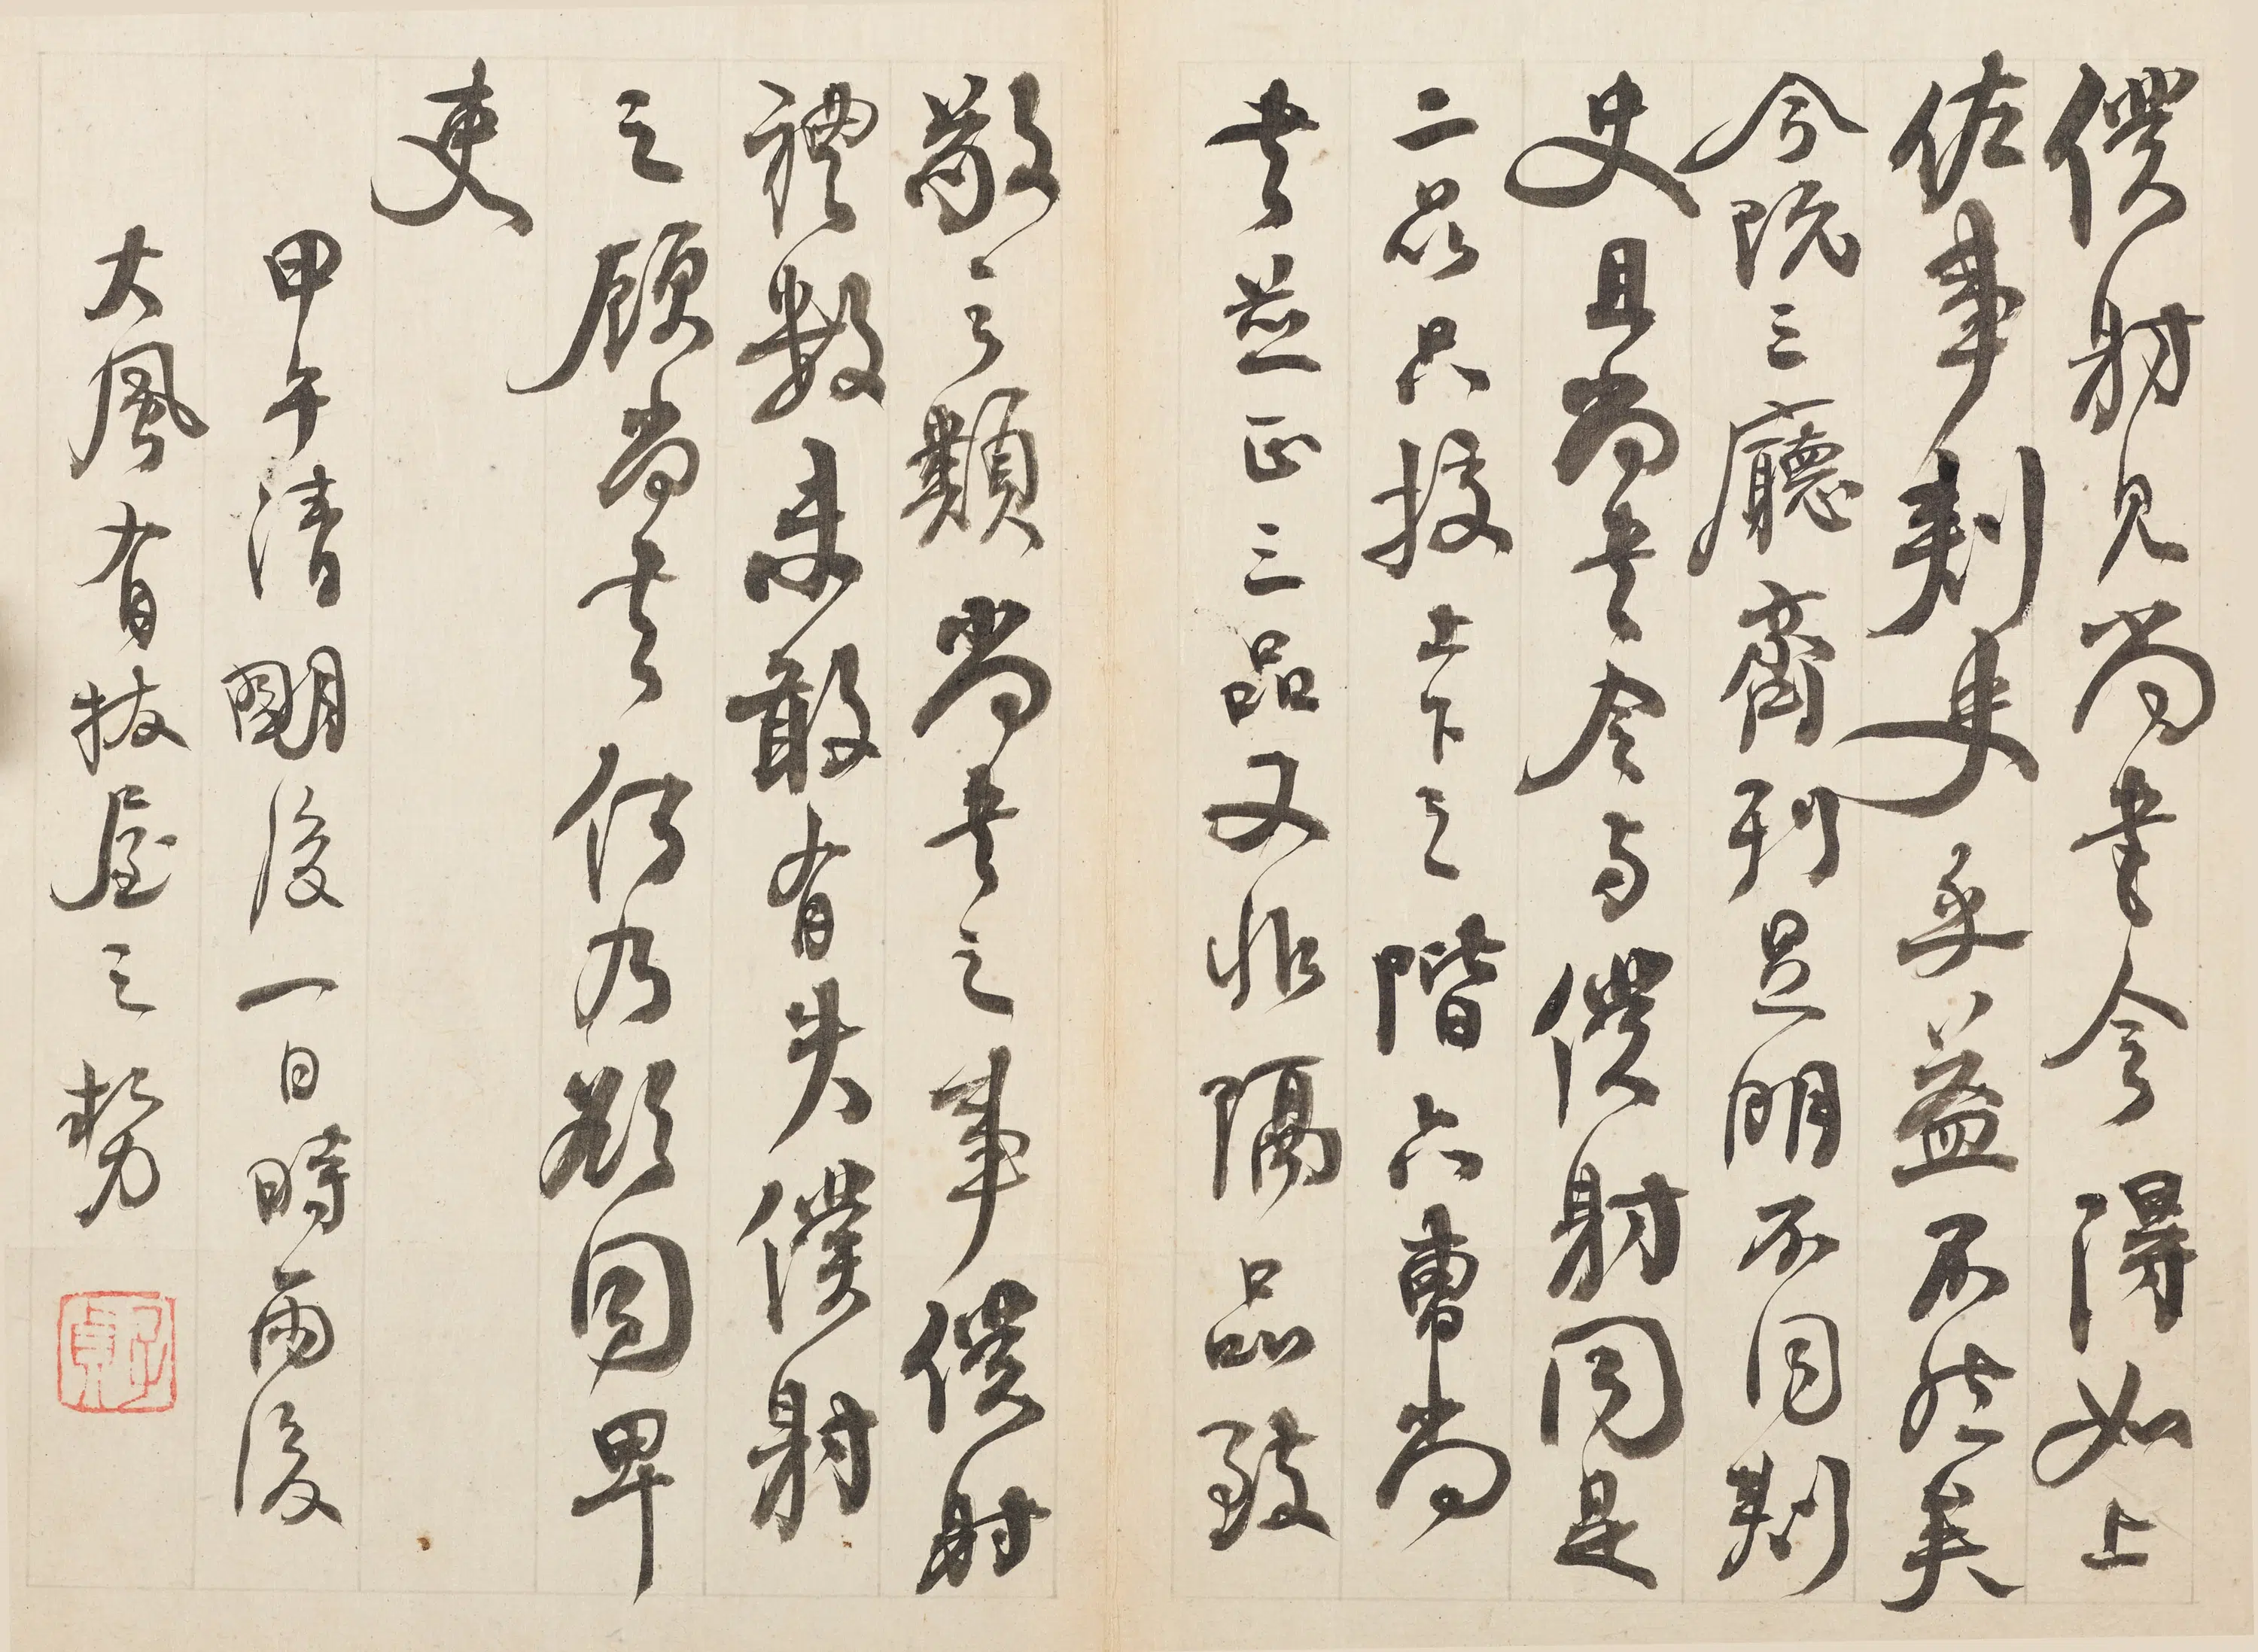 僕射見尚書令得如上
佐事刺史乎益不然矣
今既三廳齊列足明不同刺
史且尚書令与僕射同是
二品只校上下之階六曹尚
書並正三品又非隔品致
敬之類尚書之事僕射
禮數未敢有失僕射
之顧尚書何乃欲同卑
吏
甲午清明後一日時雨後
大風有拔屋之勢
子貞